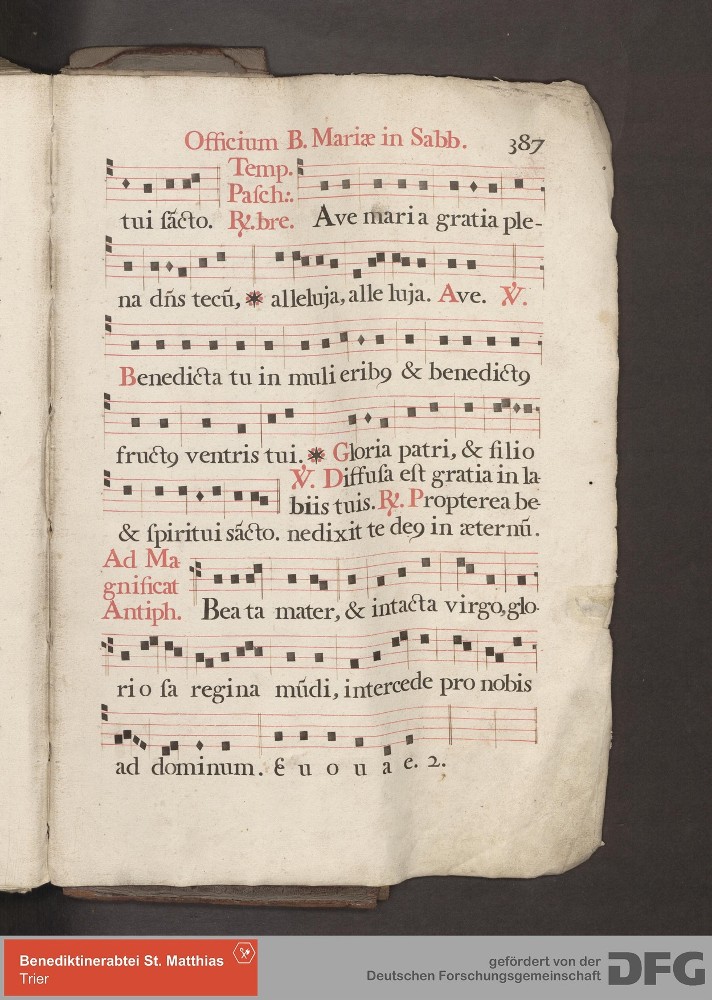 Officium B. Mariæ in Sabb. 387
Temp.
Pasch:.
tui sãcto. ℟. bre. Ave maria gratia ple-
na dn̄s tecũ, * alleluja, alle luja. Ave. ℣.
Benedicta tu in mulieribꝯ & benedictꝯ
fructꝯ ventris tui. * Gloria patri, & filio
℣. Diffusa est gratia in la
biis tuis. ℟. Propterea be-
& spiritui sãcto. nedixit te deꝯ in æternũ.
Ad Ma
gnificat
Antiph. Beata mater, & intacta virgo, glo-
rio sa regina mũdi, intercede pro nobis
ad dominum. E u o u a e. 2.
Benediktinerabtei St. Matthias
Trier
gefördert von der
Deutschen Forschungsgemeinschaft DFG